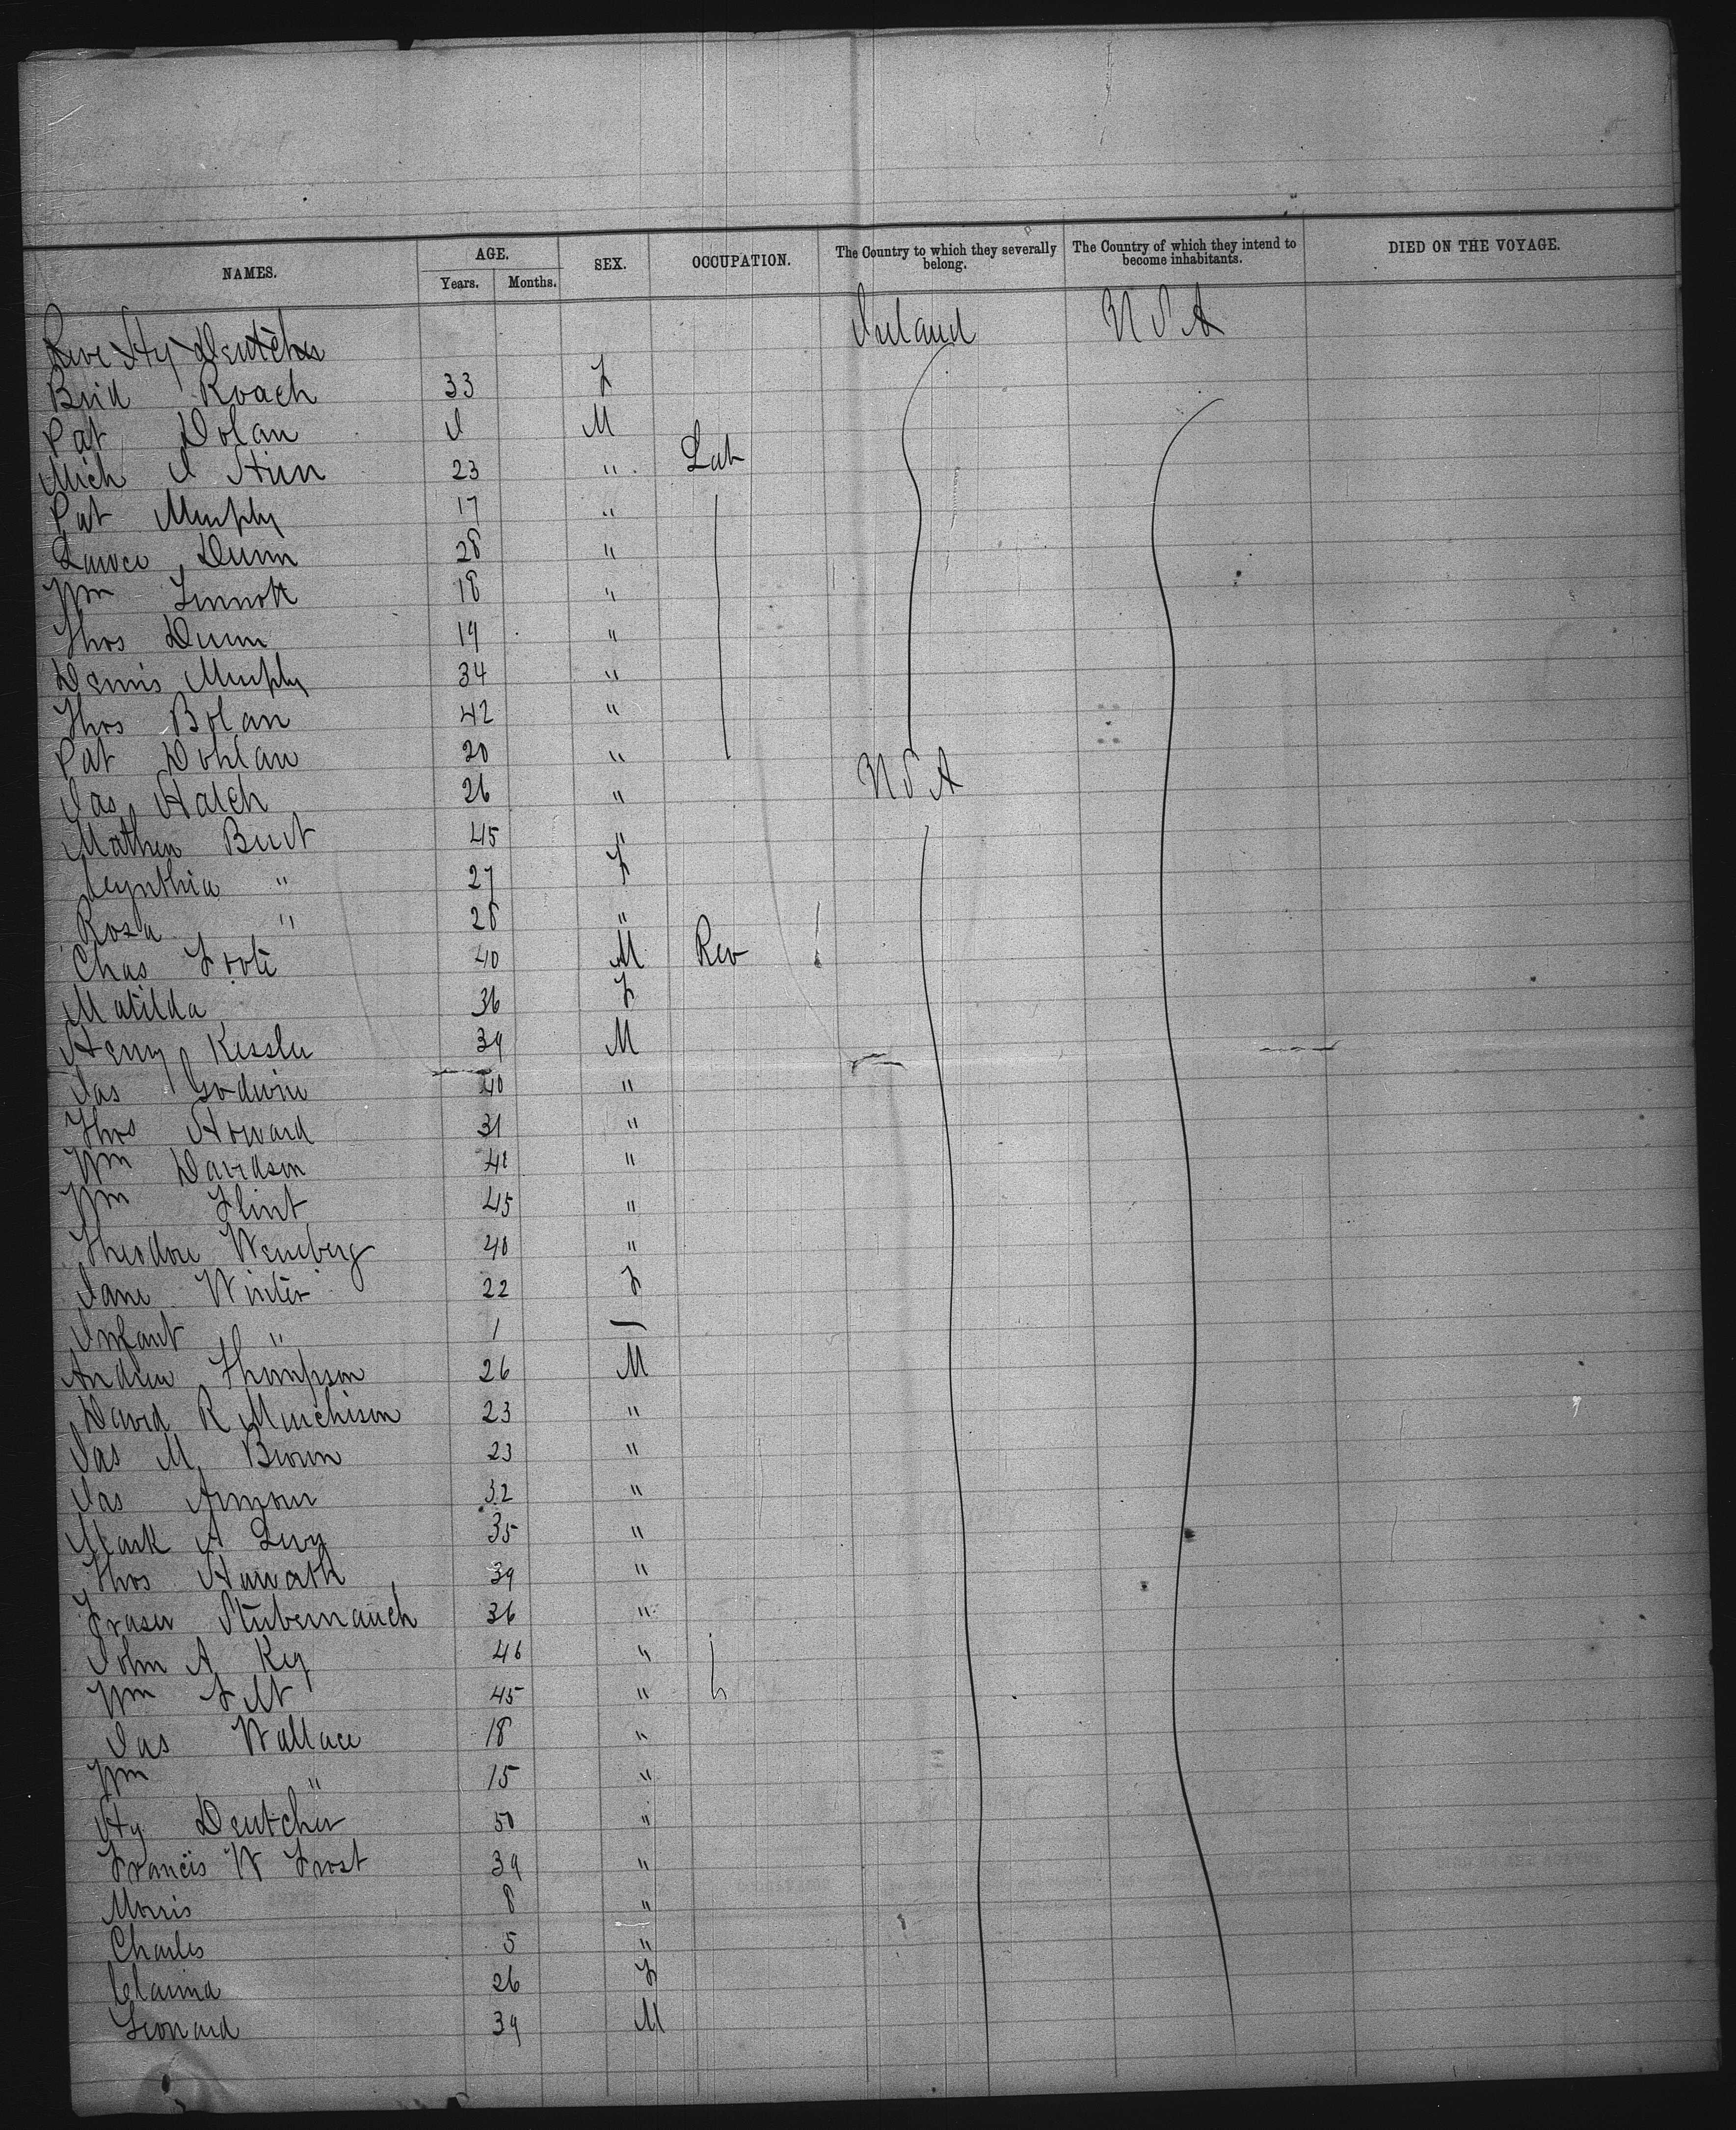 NAMES. AGE. SEX. OCCUPATION. The Country to which they severally belong. The Country of which they intend to become inhabitants. DIED ON THE VOYAGE.
Years. Months.
Hy Deutcher Ireland U S A
Brid Roach 33 F
Pat Dolan M
Mich 23 " Lab
Pat Murphy 17 "
Dunn 28 "
Wm Sinnott 18 "
Thos Dunn 19 "
Dennis Murphy 34 "
Thos Bolan 42 "
Pat Dohlan 20 "
Jas Hatch 26 " U S A
Mathew Burt 45 "
Cynthia " 27 F
Rosa " 28 "
Chas Foote 40 M Rev
Matilda 36 F
Henry Kessler 39 M
Jas Godwin 40 "
Thos Howard 31 "
Wm Davidson 48 "
Wm Flint 45 "
Theodore 40 "
Jane Winter 22 F
Infant " 1 —
Andrew Thompson 26 M
David R Murchison 23 "
Jas M Brown 23 "
Jas Armour 32 "
Mark A Levy 35 "
Thos 39 "
Fraser 36 "
John A Key 46 "
Wm 45 "
Jas Wallace 18 "
Wm " 15 "
Hy Deutcher 50 "
Francis W Frost 39 "
Morris 8 "
Charles 5 "
26 F
Leonard 39 M